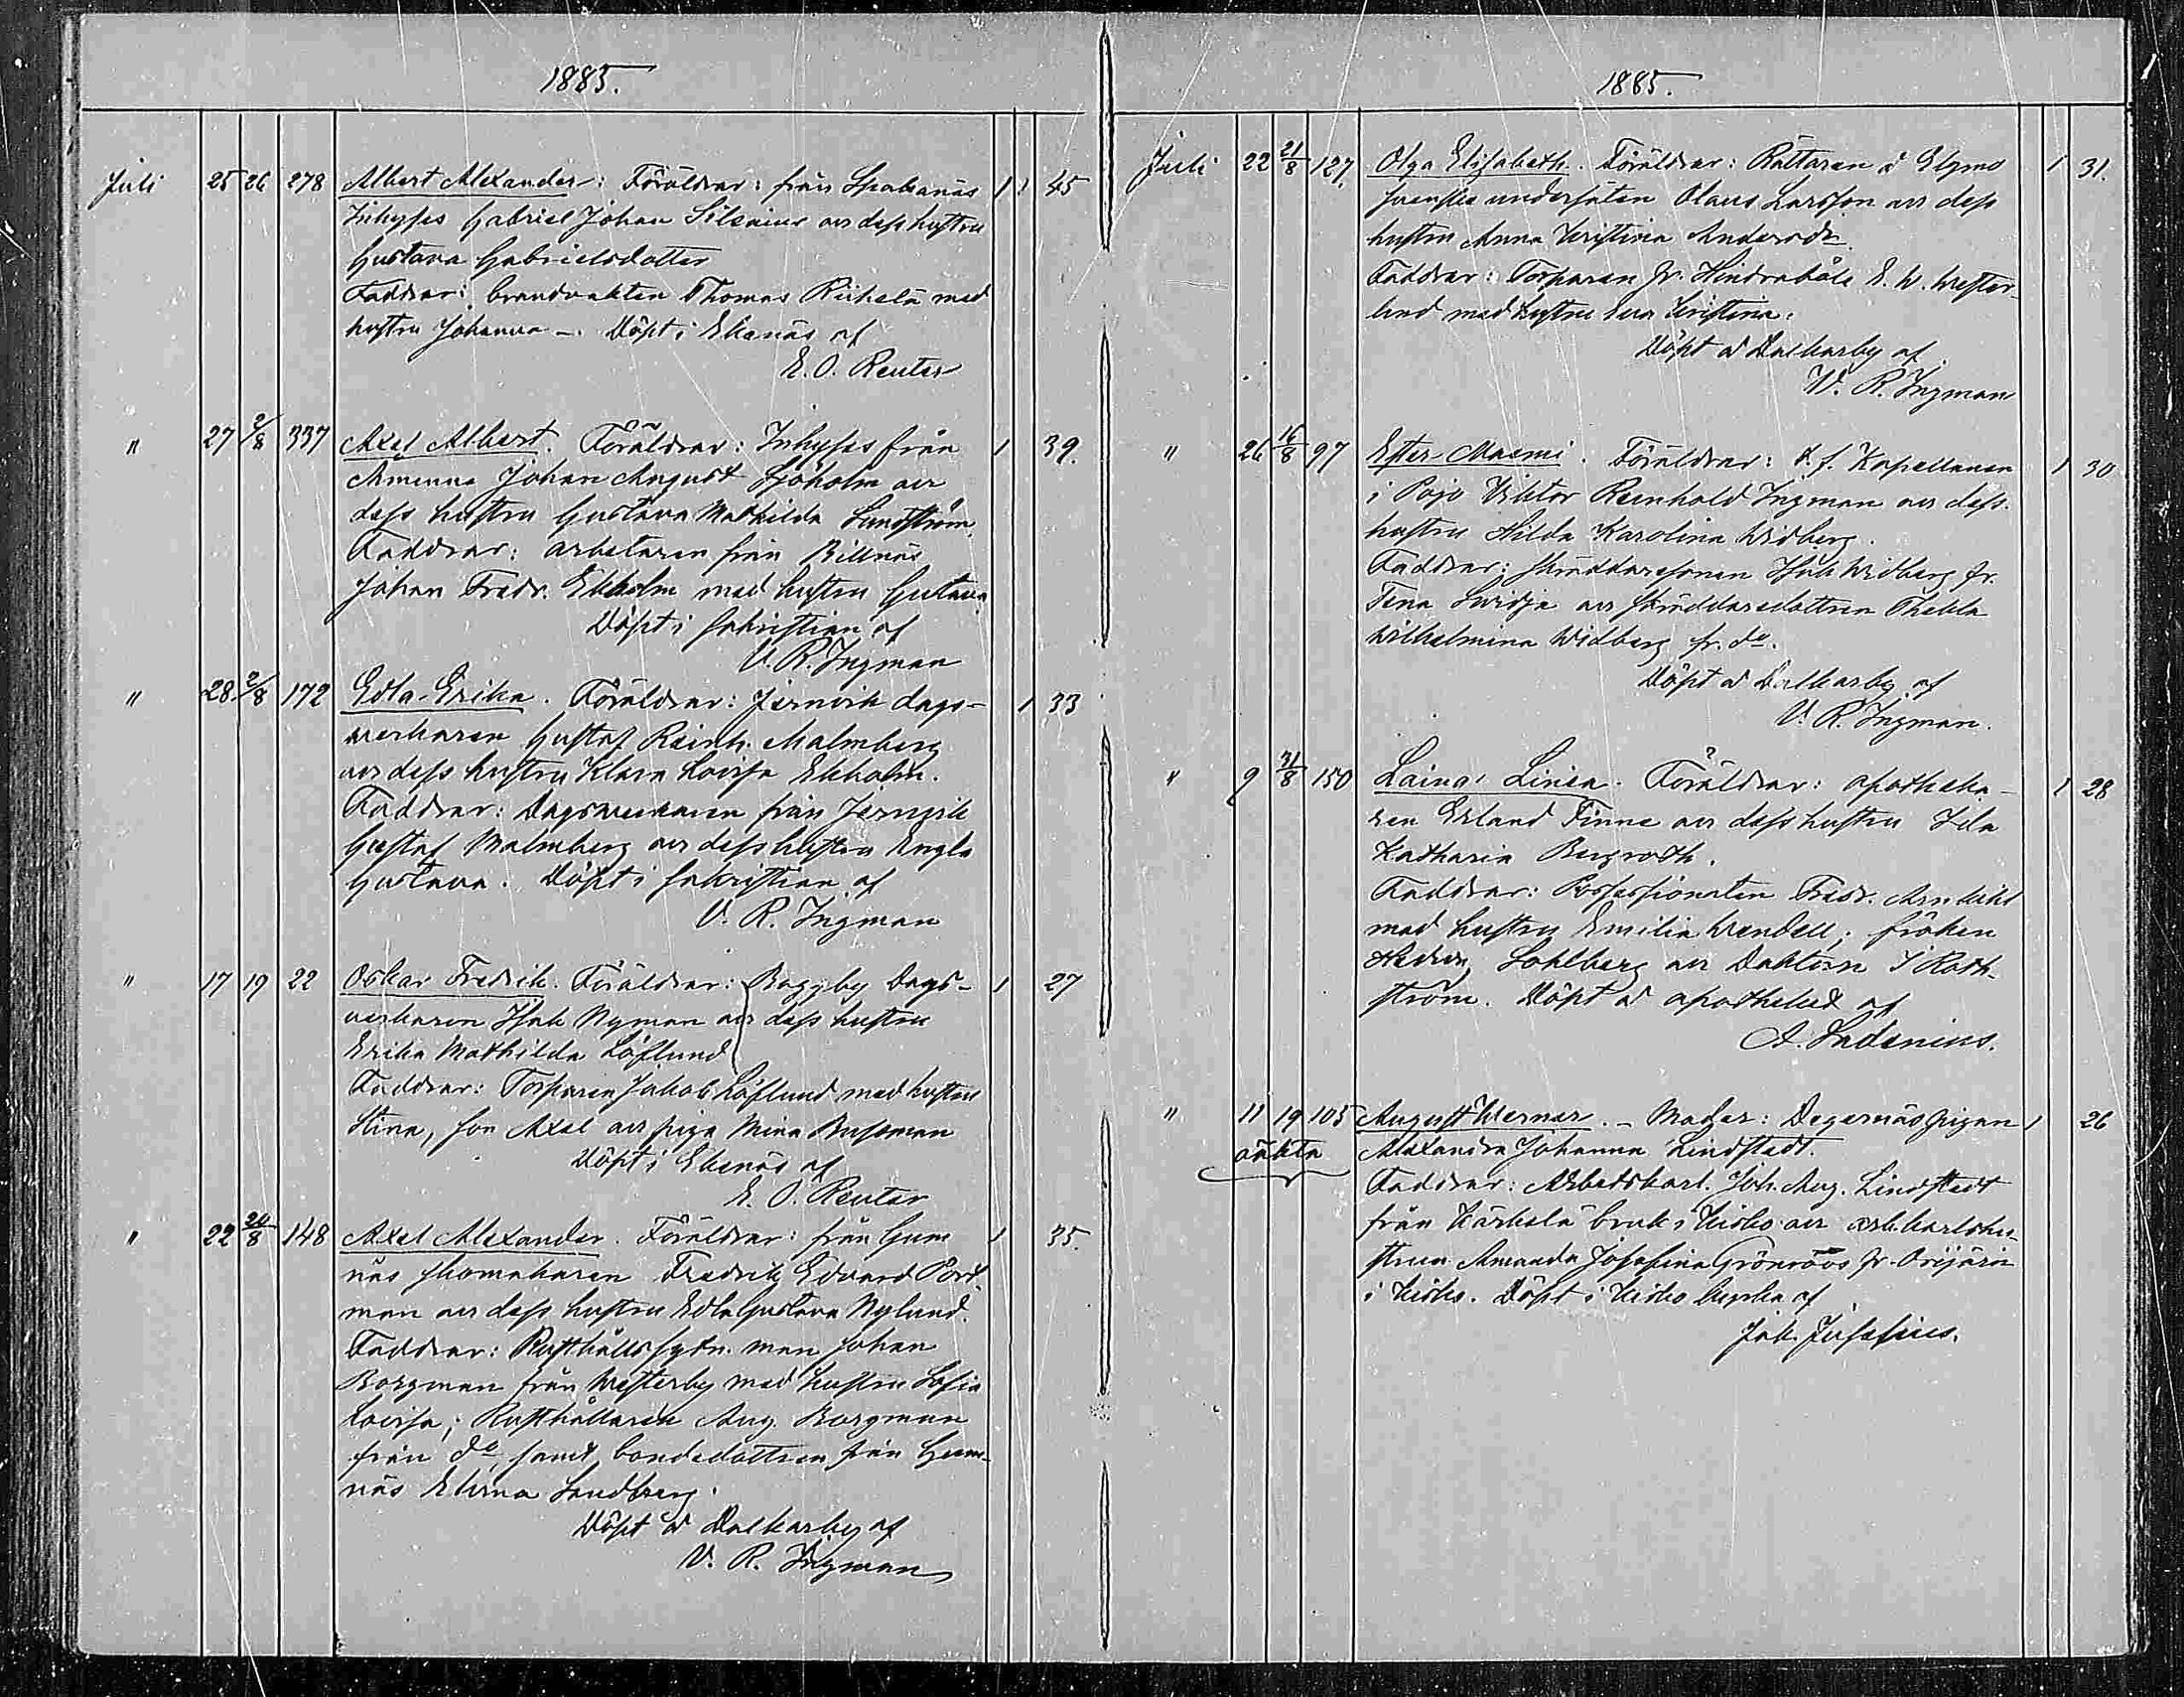 1885.
Juli 25 26 278 Albert Alexander: Föräldrar: från Spakanäs 1 45
Inhyses Gabriel Johan Silenius och dess hustru
Gustava Gabrielsdotter
Faddrar: brandvakten Thomas med
hustru Johanna –. Döpt i Ekenäs af
E. O. Reuter
" 27 2/8 337 Axel Albert. Föräldrar: Inhyses från 1 39.
Aminne Johan August Sjöholm och
dess hustru Gustava Mathilda Sundström.
Faddrar: arbetaren från Billnäs
Johan Fredr. Ekholm med hustru Gustava
Döpt i sakristian af
V. R. Ingman
" 28 2/8 172 Edla Erika. Föräldrar: Jernvik dags- 1 33
verkaren Gustaf Reinh. Malmberg
och dess hustru Klara Lovisa Ekholm.
Faddrar: Dagsverkaren från Jernvik
Gustaf Malmberg och dess hustru Engla
Gustava. Döpt i sakristian af
V. R. Ingman
" 17 19 22 Oskar Fredrik. Föräldrar: Baggby Dags- 1 27
verkaren Isak Nyman och dess hustru
Erika Mathilda Löflund
Faddrar: Torparen Jakob Löflund med hustru
Stina, son Axel och piga Mina Bussman
Döpt i Ekenäs af
E. O. Reuter
" 22 20/8 148 Axel Alexander. Föräldrar: från Gum 1 35.
näs skomakaren Fredrik Edvard Ford
man och dess hustru Edla Gustava Nylund.
Faddrar: Rusthålls sytn. man Johan
Borgman från Westerby med hustru Sofia
Lovisa; Rusthållaren Aug. Borgman
från do, samt bondedottren från Gum-
näs Elvina Sandberg.
Döpt å Dalkarby af
V. R. Ingman
1885.
Juli 22 21/8 127. Olga Elisabeth. Föräldrar: Rättaren å Elgmo 1 31.
svenska undersåten Olaus Larsson och dess
hustru Anna Kristina Andersdr.
Faddrar: Torparen fr. Hindrabåle E. W. Wester-
lund med hustru Eva Kristina.
Döpt å Dalkarby af
V. R. Ingman
" 26 16/8 97 Ester Maemi. Föräldrar: t. f. Kapellanen 1 30
i Pojo Viktor Reinhold Ingman och dess
hustru Hilda Karolina Widberg.
Faddrar: skräddaresonen Isak Widberg fr.
Tena och skräddaredottren Thekla
Wilhelmina Widberg fr. do.
Döpt å Dalkarby af
V. R. Ingman.
" 9 31/8 150 Laina Linea. Föräldrar: apotheka- 1 28
ren Erland Finne och dess hustru Ida
Katharia Bergroth.
Faddrar: Possessionaten Fredr.
med hustru Emilia Wendell; fröken
Hedvig Sohlberg och Doktorn J Roth-
ström. Döpt å apotheket af
A. Ladenius.
" 11 19 105 August Werner. – Moder: Degernäs pigan 1 26
oäkta Alexandra Johanna Lindstedt.
Faddrar: Arbetskarl. Joh. Aug. Lindstedt
från Kärkelä bruk i Kisko och arb. karlshu-
strun Amanda Josefina Grönroos fr. Orijärvi
i Kisko. Döpt i Kisko kyrka af
Joh. Juselius.